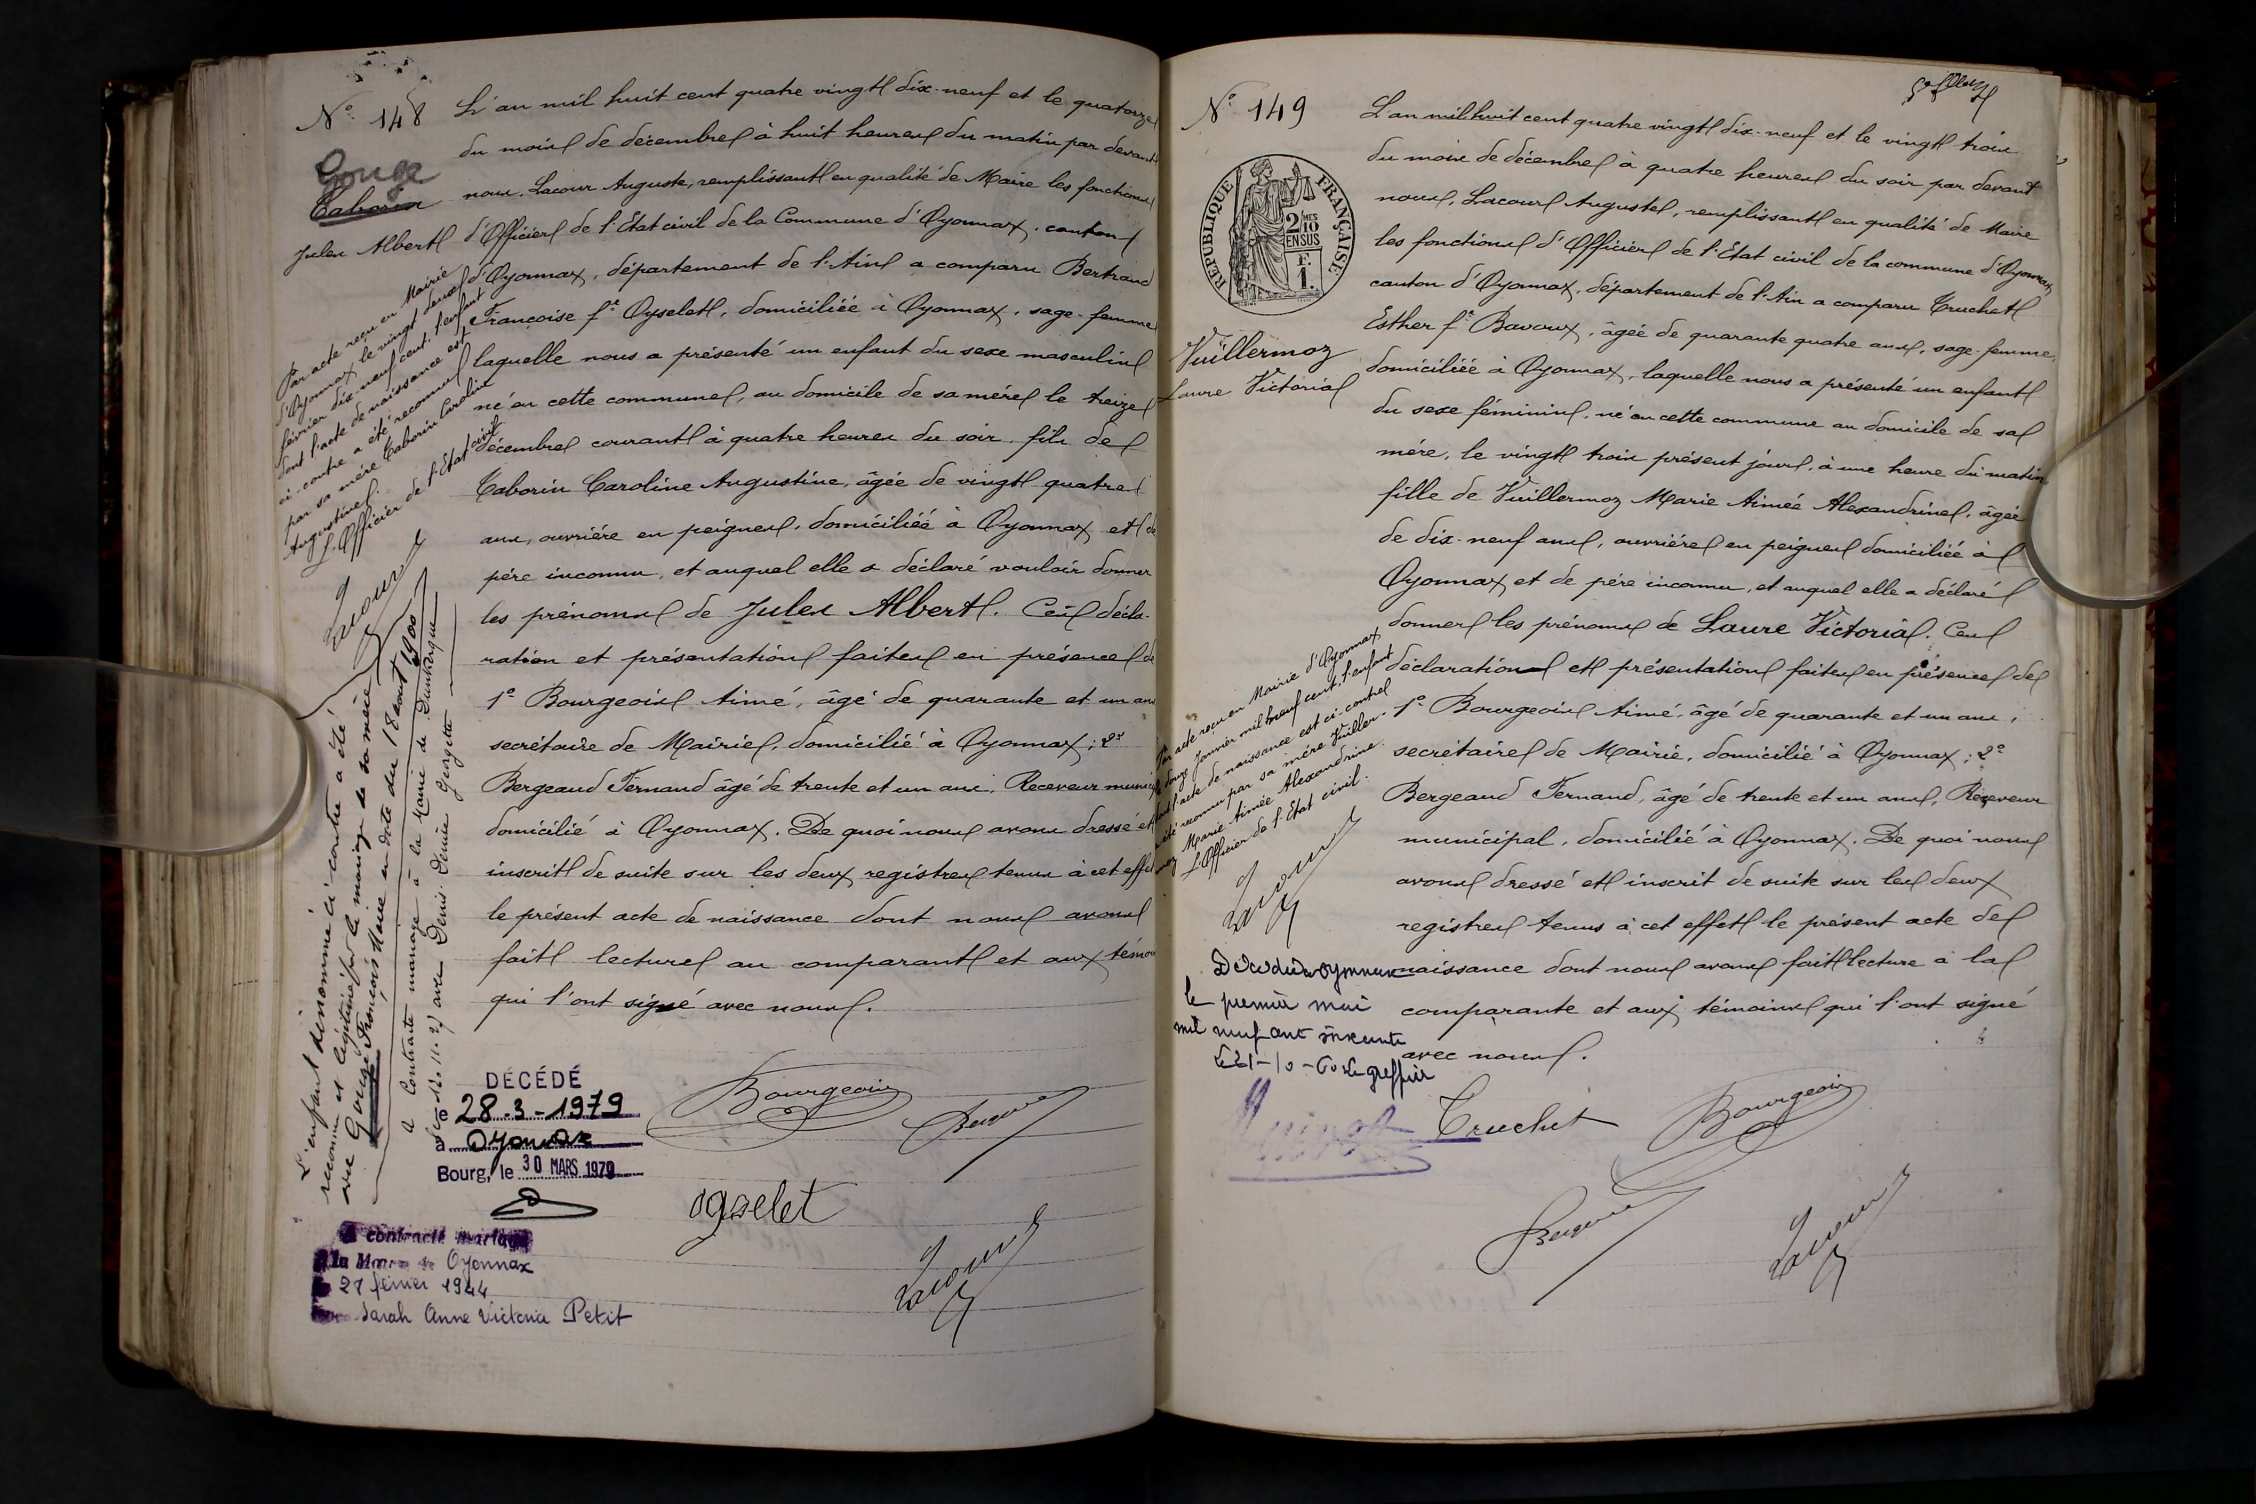 N° 148
Gouge
Taborin
Jules Albert
L'an mil huit cent quatre vingt dix-neuf et le quatorze
du mois de décembre à huit heures du matin par devant
nous, Lacour Auguste, remplissant en qualité de Maire les fonctions
d'Officier de l'Etat civil de la Commune d'Oyonnax, canton
d'Oyonnax, département de l'Ain a comparu Bertrand
Françoise fe Oyselet, domiciliée à Oyonnax, sage-femme
laquelle nous a présenté un enfant du sexe masculin
né en cette commune, au domicile de sa mère le treize
décembre courant à quatre heures du soir, fils de
Taborin Caroline Augustine, âgée de vingt quatre
ans, ouvrière en peignes, domiciliée à Oyonnax et de
père inconnu, et auquel elle a déclaré vouloir donner
les prénoms de Jules Albert. Ces décla-
ration et présentation faites en présence de
1° Bourgeois Aimé, âgé de quarante et un ans
secrétaire de Mairie, domicilié à Oyonnax; 2°
Bergeaud Fernand âgé de trente et un ans, Receveur munici
domicilié à Oyonnax. De quoi nous avons dressé et
inscrit de suite sur les deux registres tenus à cet effet
le présent acte de naissance dont nous avons
fait lecture au comparant et aux témoi
qui l'ont signé avec nous.
Par acte reçu en Mairie
d'Oyonnax le vingt deux
février dix-neuf cent, l'enfant
dont l'acte de naissance est
ci-contre a été reconnu
par sa mère Taborin Caroline
Augustine.
L'Officier de l'Etat civil
Lacour
L'enfant dénommé ci-contre a été
reconnu et légitimé par le mariage de sa mère
avec Gouge François Marie en date du 18 août 1900
a Contracté mariage à la Mairie de Dunkerque
avec Denis Denise Georgette
DÉCÉDÉ
le 28-3-1979
à Oyonnax
Bourg, le 30 MARS 1979
a contracté mariage
à la Mairie de Oyonnax
le 21 février 1944
avec Sarah Anne Victoria Petit
Bourgeois
Oyselet
Lacour
N° 149
RÉPUBLIQUE FRANÇAISE
2/10 MES
EN SUS
F.
1.
Vuillermoz
Laure Victoria
L'an mil huit cent quatre vingt dix-neuf et le vingt trois
du mois de décembre à quatre heures du soir par devant
nous, Lacour Auguste, remplissant en qualité de Maire
les fonctions d'Officier de l'Etat civil de la commune d'Oyonnax
canton d'Oyonnax, département de l'Ain a comparu Truchet
Esther fe Bavoux, âgée de quarante quatre ans, sage-femme,
domiciliée à Oyonnax, laquelle nous a présenté un enfant
du sexe féminin, né en cette commune au domicile de sa
mère, le vingt trois présent jour, à une heure du matin
fille de Vuillermoz Marie Aimée Alexandrine, âgée
de dix-neuf ans, ouvrière en peignes domiciliée à
Oyonnax et de père inconnu, et auquel elle a déclaré
donner les prénoms de Laure Victoria. Ces
déclaration et présentation faites en présence de
1° Bourgeois Aimé, âgé de quarante et un ans,
secrétaire de Mairie, domicilié à Oyonnax; 2°
Bergeaud Fernand, âgé de trente et un ans, Receveur
municipal, domicilié à Oyonnax. De quoi nous
avons dressé et inscrit de suite sur les deux
registres tenus à cet effet le présent acte de
naissance dont nous avons fait lecture à la
comparante et aux témoins qui l'ont signé
avec nous.
Par acte reçu en Mairie d'Oyonnax
le douze Janvier mil neuf cent, l'enfant
dont l'acte de naissance est ci-contre
a été reconnu par sa mère Vuiller-
moz Marie Aimée Alexandrine.
L'Officier de l'Etat civil.
Lacour
Décédée à Oyonnax
le premier mai
mil neuf cent soixante
Le 21-10-60 Le greffier
Truchet
Bourgeois
Lacour